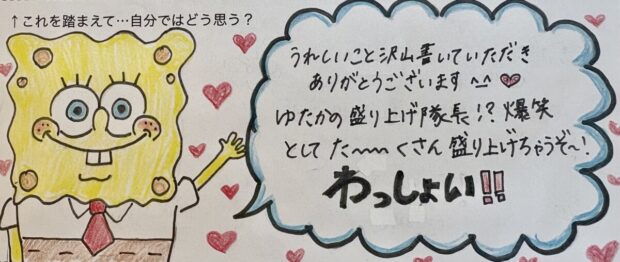 ↑これを踏まえて…自分ではどう思う？
うれしいこと沢山書いていただき
ありがとうございます^^♥
ゆたかの盛り上げ隊長!?爆笑
として た〜〜くさん盛り上げちゃうぞ〜!
わっしょい!!